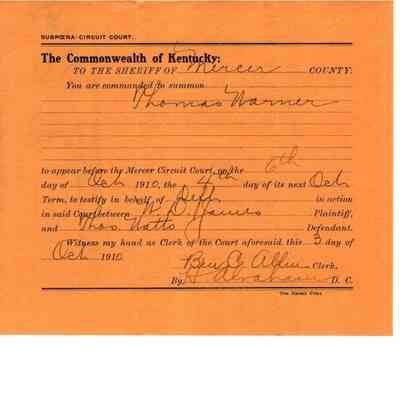 SUBPOENA-CIRCUIT COURT.
The Commonwealth of Kentucky:
TO THE SHERIFF OF Mercer COUNTY:
You are commanded to summon
Thomas Warner
to appear before the Mercer Circuit Court, on the 6th
day of Oct 1910, the 4th day of its next Oct
Term, to testify in behalf of Deft in action
in said Court between W. D. James Plaintiff,
and Thos. Watts Defendant.
Witness my hand as Clerk of the Court aforesaid, this 3 day of
Oct 1910
Ben C. Allin Clerk,
By, D. C.